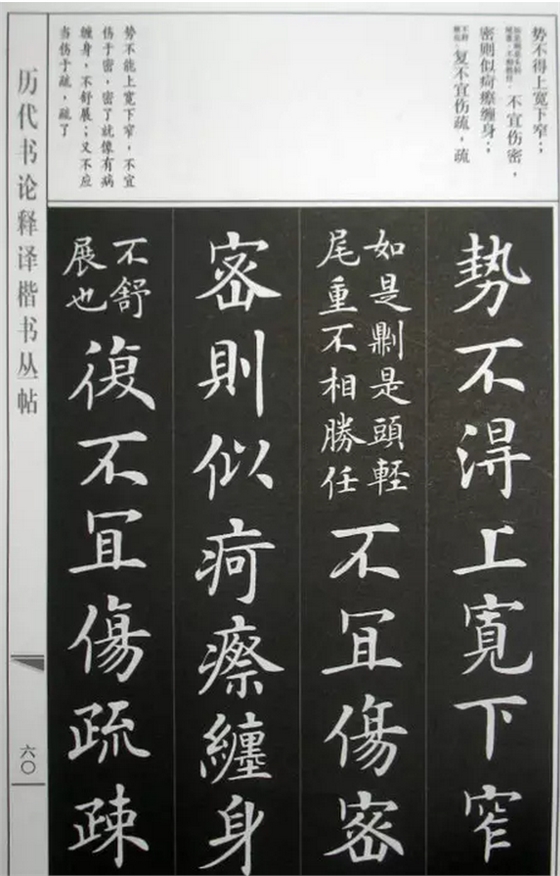 势不得上宽下窄；；
如是则是头轻
尾重，不相胜任。
不宜伤密，
密则似疴瘵缠身；；
不舒
展也。
复不宜伤疏，疏
势不能上宽下窄，不宜
伤于密，密了就像有病
缠身，不舒展；又不应
当伤于疏，疏了
勢不淂上寬下窄
如是則是頭輕
尾重不相勝任
不冝傷宻
宻則似疴瘵纏身
不舒
展也
復不冝傷疏疎
历代书论释译楷书丛帖
六〇